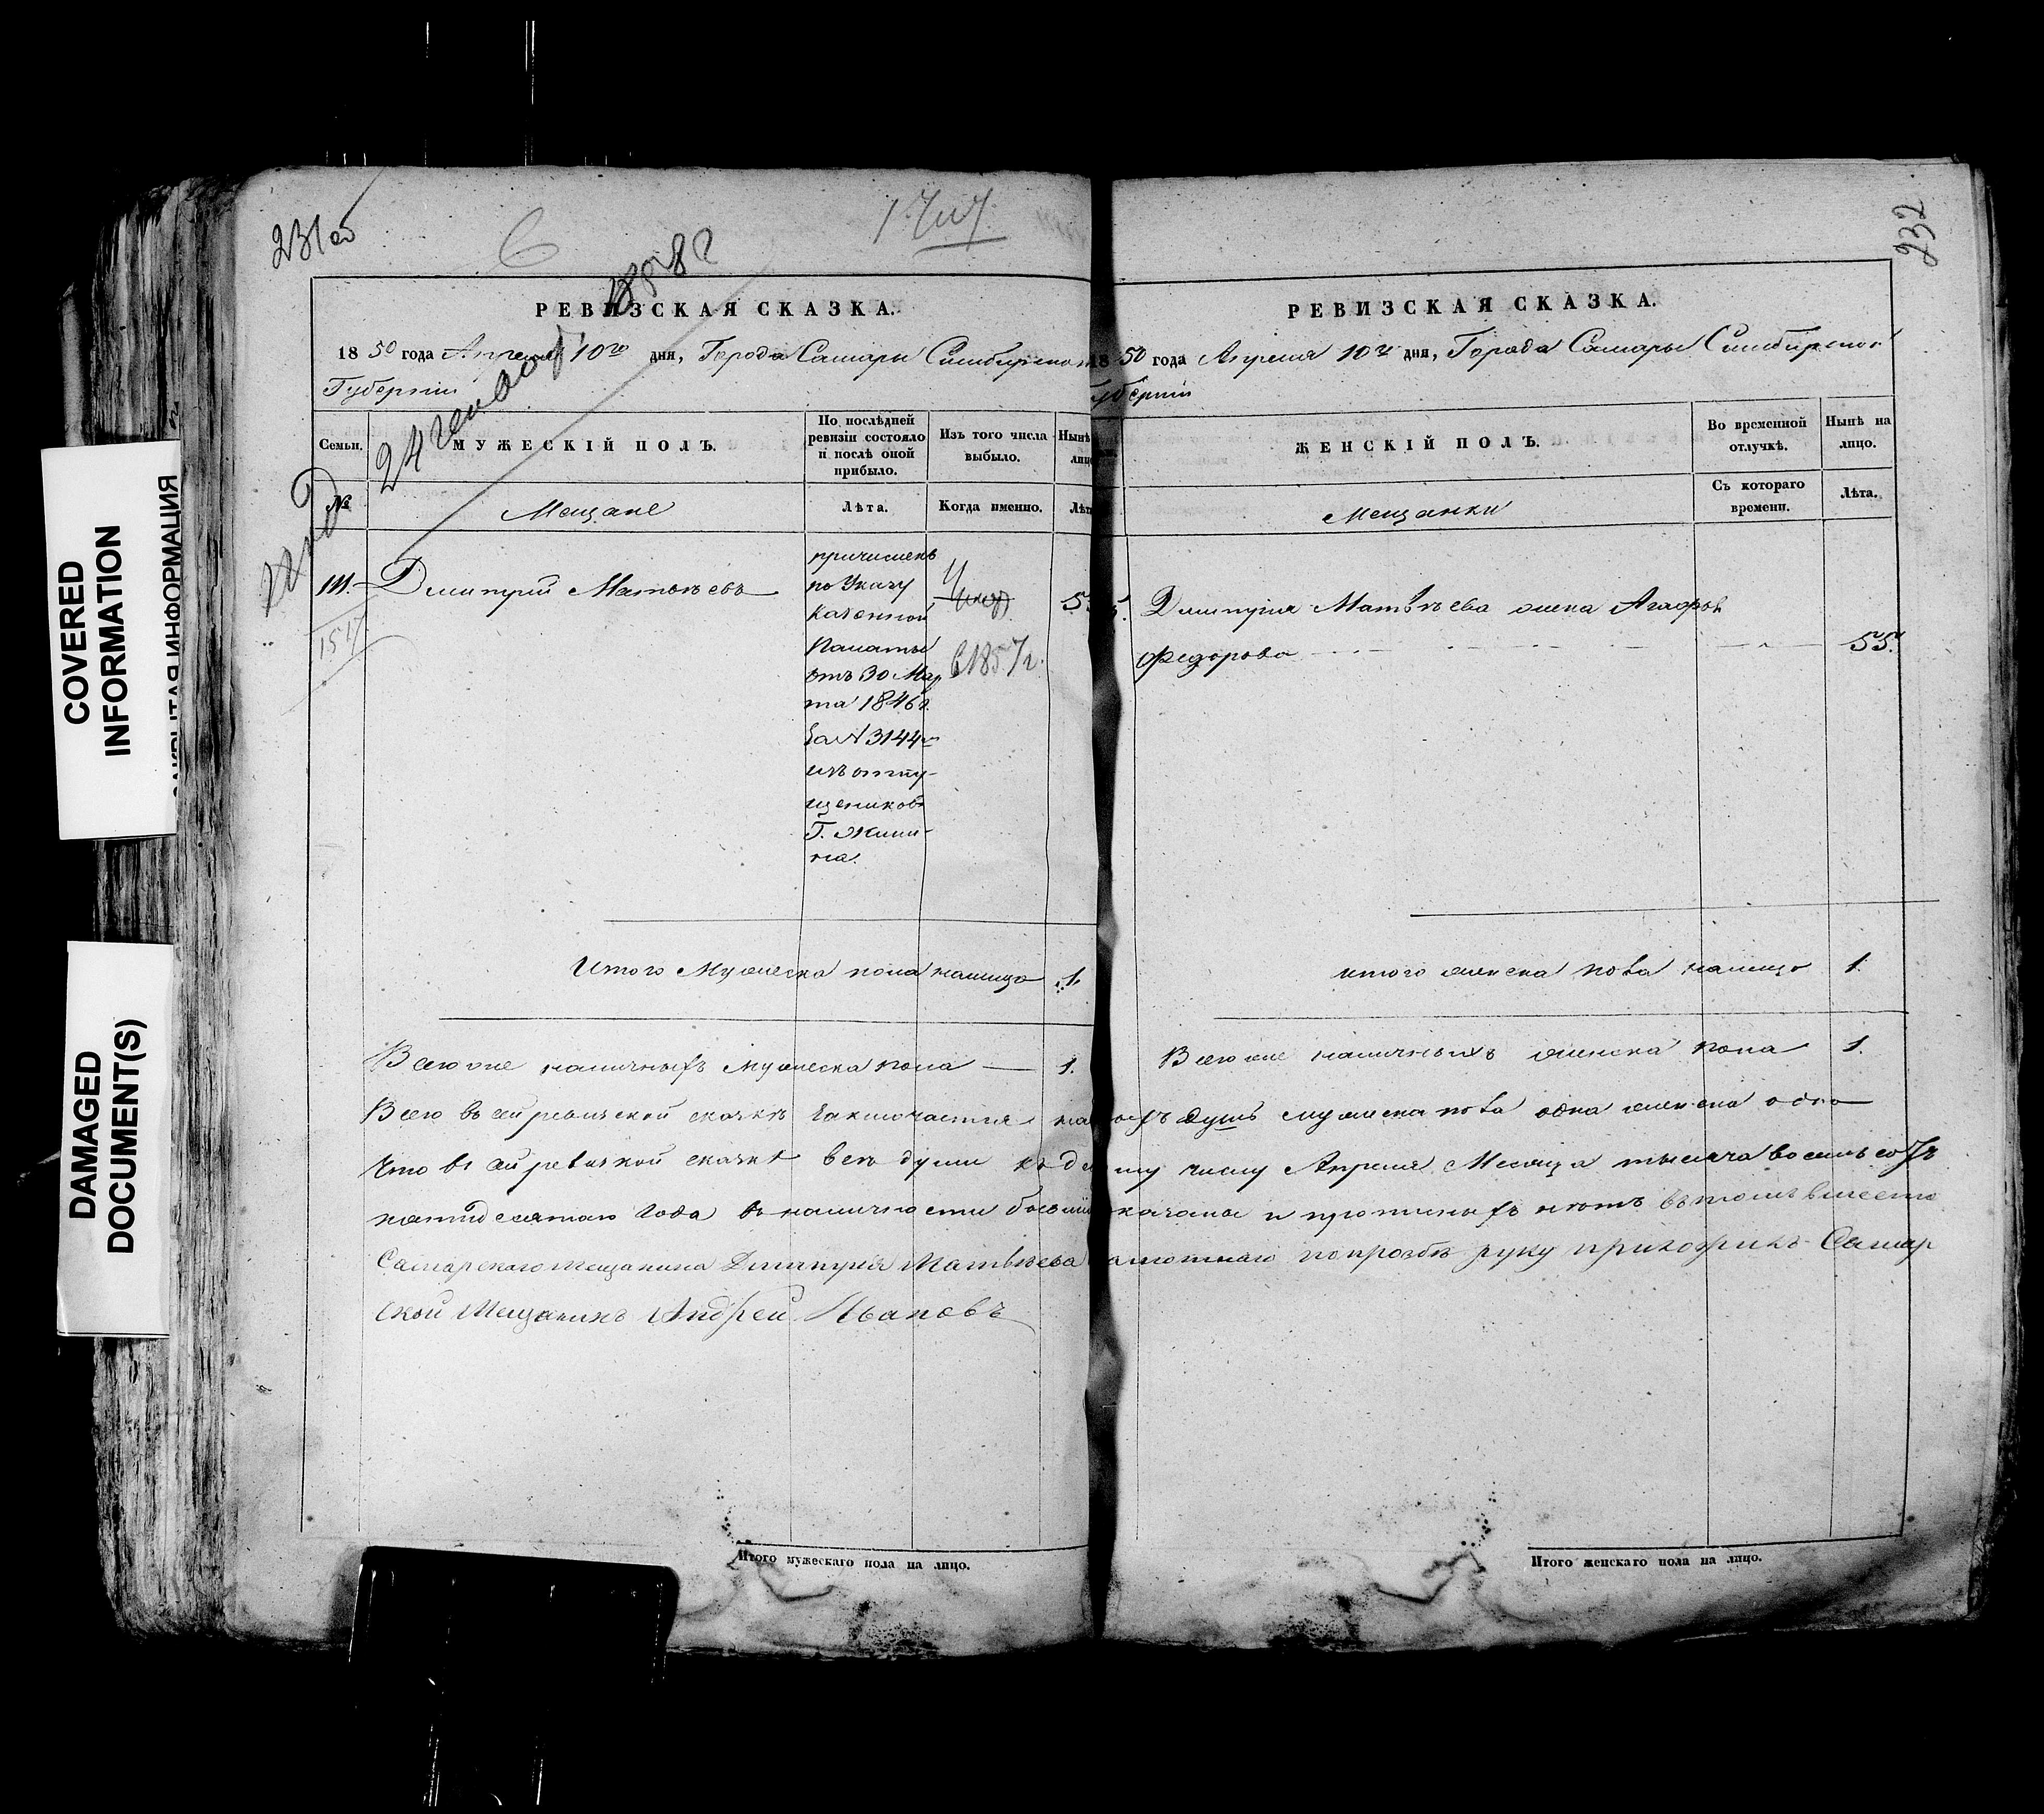 231 об
6
1 чи
РЕВИЗСКАЯ СКАЗКА.
1850 года Апреля 10го дня, Города Самары Симбирской
Губернии
24 генваря 1858 г
Семьи.
МУЖЕСКІЙ ПОЛЪ.
По послѣдней
ревизіи состояло
и послѣ оной
прибыло.
Изъ того числа
выбыло.
Нынѣ
лицо
№
Мещане
Лѣта.
Когда именно.
Лѣт
111.
Дмитрий Матвѣевъ
причисленъ
по Указу
казенной
Палаты
отъ 30 Мар
та 1846 г.
за № 3144
изъ отпу-
щениковъ
Г.
на.
Умер
в 1857 г.
55.
Итого Мужеска пола налицо 1.
Всего же наличныхъ мужеска пола — 1.
232
РЕВИЗСКАЯ СКАЗКА.
1850 года Апреля 10го дня, Города Самары Симбирской
Губерніи
ЖЕНСКІЙ ПОЛЪ.
Во временной
отлучкѣ.
Нынѣ на
лицо.
Мещанки
Съ котораго
времени.
Лѣта.
Дмитрия Матвѣева жена Агафья
Федорова
55.
итого женска пола налицо 1.
Всего же наличныхъ женска пола 1.
Всего въ сей ревизской сказкѣ заключается налицо душъ мужеска пола одна женска одна
Что въ сей ревизской сказкѣ всѣ души къ десятому числу Апреля Месяца тысяча восемь сотъ
пятидесятаго года в наличности бывшие показаны и прописныхъ нѣтъ въ томъ вместо
Самарскаго мещанина Дмитрия Матвѣева неграмотнаго по прозбѣ руку приложилъ Самар
ской Мещанинъ Андрей Ивановъ
Итого мужескаго пола на лицо.
Итого женскаго пола на лицо.
COVERED
INFORMATION
ЗАКРЫТАЯ ИНФОРМАЦИЯ
DAMAGED
DOCUMENT(S)